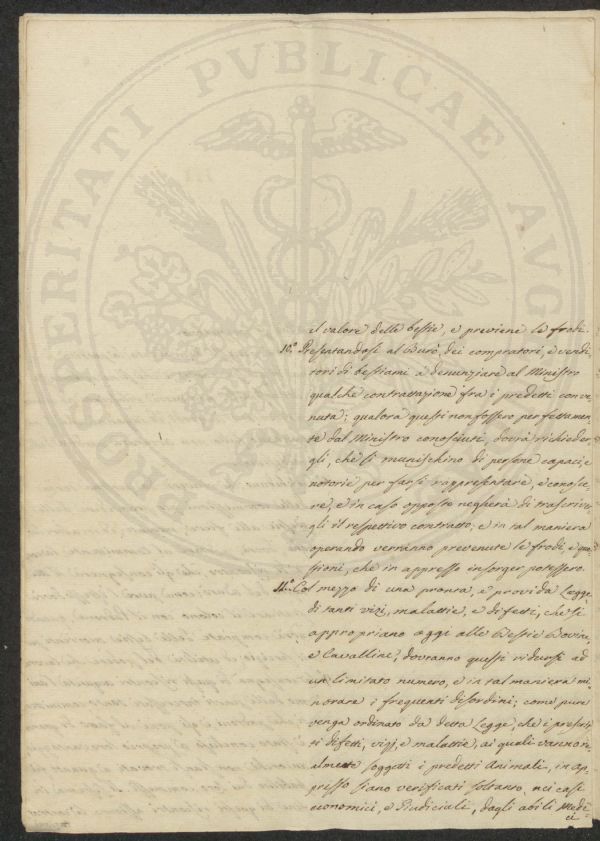 PROSPERITATI PVBLICAE AVG
el valore delle bestie, e previene le frodi.
10.º Presentandosi al Burò dei compratori, e vendi-
tori di bestiami a denunziare al Ministro
qualche contrattazione fra i predetti conve-
nuta; qualora questi non fossero perfettamen-
te dal Ministro conosciuti, dovrà richieder-
gli, che si munischino di persone capaci, e
notorie per farsi rappresentare, e conosce-
re, e in caso opposto negherà di trascriver-
gli il respettivo contratto; e in tal maniera
operando verranno prevenute le frodi, e que-
stioni, che in appresso insorger potessero.
11.º Col mezzo di una pronta, e provida Legge
di tanti vizj, malattie, e difetti, che si
appropriano oggi alle Bestie Bovine,
e Cavalline, dovranno questi ridursi ad
un limitato numero, e in tal maniera mi-
norare i frequenti disordini; come pure
venga ordinato da detta Legge, che i prefati
difetti, vizj, e malattie, ai quali
soggetti i predetti Animali, in ap-
presso siano verificati soltanto, nei casi
economici, e Giudiciali, dagli abili Medi-
ci